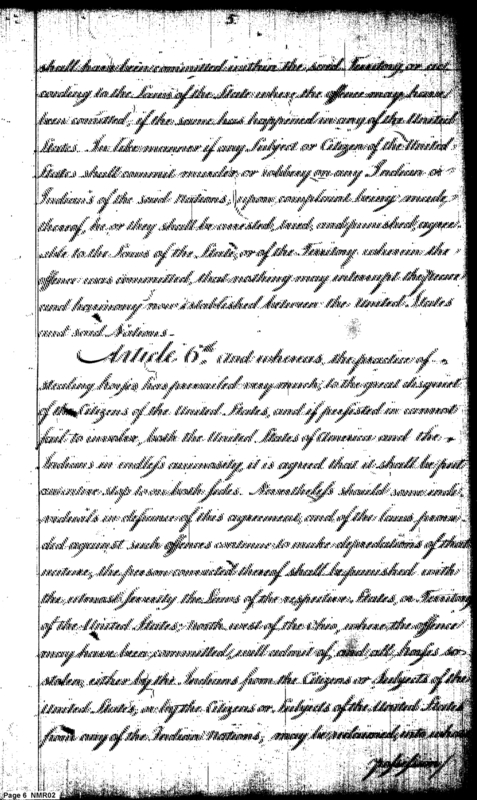 5.
shall have been committed within the said Territory, or ac-
cording to the Laws of the State where the offence may have
been comitted, if the same has happened in any of the United
States. In like manner if any Subject or Citizen of the United
States shall commit murder or robbery on any Indian or
Indians of the said Nations, upon complaint being made
thereof, he or they shall be arrested, tried, and punished, agree-
able to the Laws of the State, or of the Territory wherein the
offence was committed, that nothing may interrupt the peace
and harmony now established between the United States
and said Nations.
Article 6th. And whereas, the practice of
stealing horses has prevailed very much, to the great disquiet
of the Citizens of the United States, and if persisted in cannot
fail to involve, both the United States of America and the
Indians in endless animosity, it is agreed that it shall be put
an entire stop to on both sides. Nevertheless should some indi-
viduals in defiance of this agreement, and of the laws provi-
ded against such offences continue to make depredations of that
nature, the person convicted thereof shall be punished with
the utmost severity the Laws of the respective States, or Territory
of the United States, North west of the Ohio, where the offence
may have been committed, will admit of, and all horses so
stolen, either by the Indians from the Citizens or Subjects of the
United States, or by the Citizens or Subjects of the United States
from any of the Indian Nations, may be reclaimed, into whose
possession
Page 6 NMR02